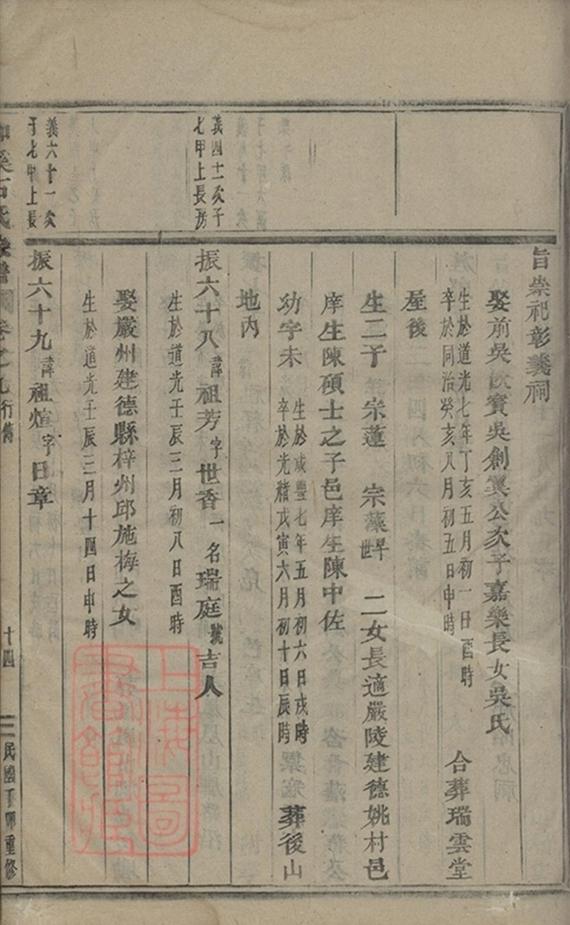 旨崇祀彰義祠
娶前吳 賓吳創翼公次子嘉樂長女吳氏
生於道光七年丁亥五月初一日酉時
卒於同治癸亥八月初五日申時
合葬瑞雲堂
屋後
生二子 宗蓮 宗藻早世 二女長適嚴陵建德姚村邑
庠生陳碩士之子邑庠生陳中佐
幼字未
生於咸豐七年五月初六日戌時
卒於光緒戊寅六月初十日辰時
葬後山
地內
義四十二次子
七甲上長房
振六十八諱祖芳字世香一名瑞庭號吉人
生於道光壬辰三月初八日酉時
娶嚴州建德縣梓州邱施梅之女
生於道光壬辰三月十四日申時
義六十一次
子七甲上長
振六十九諱祖煊字日章
溪石氏 譜 卷之九行傳 十四 民國丁卯重修
上海圖書館藏